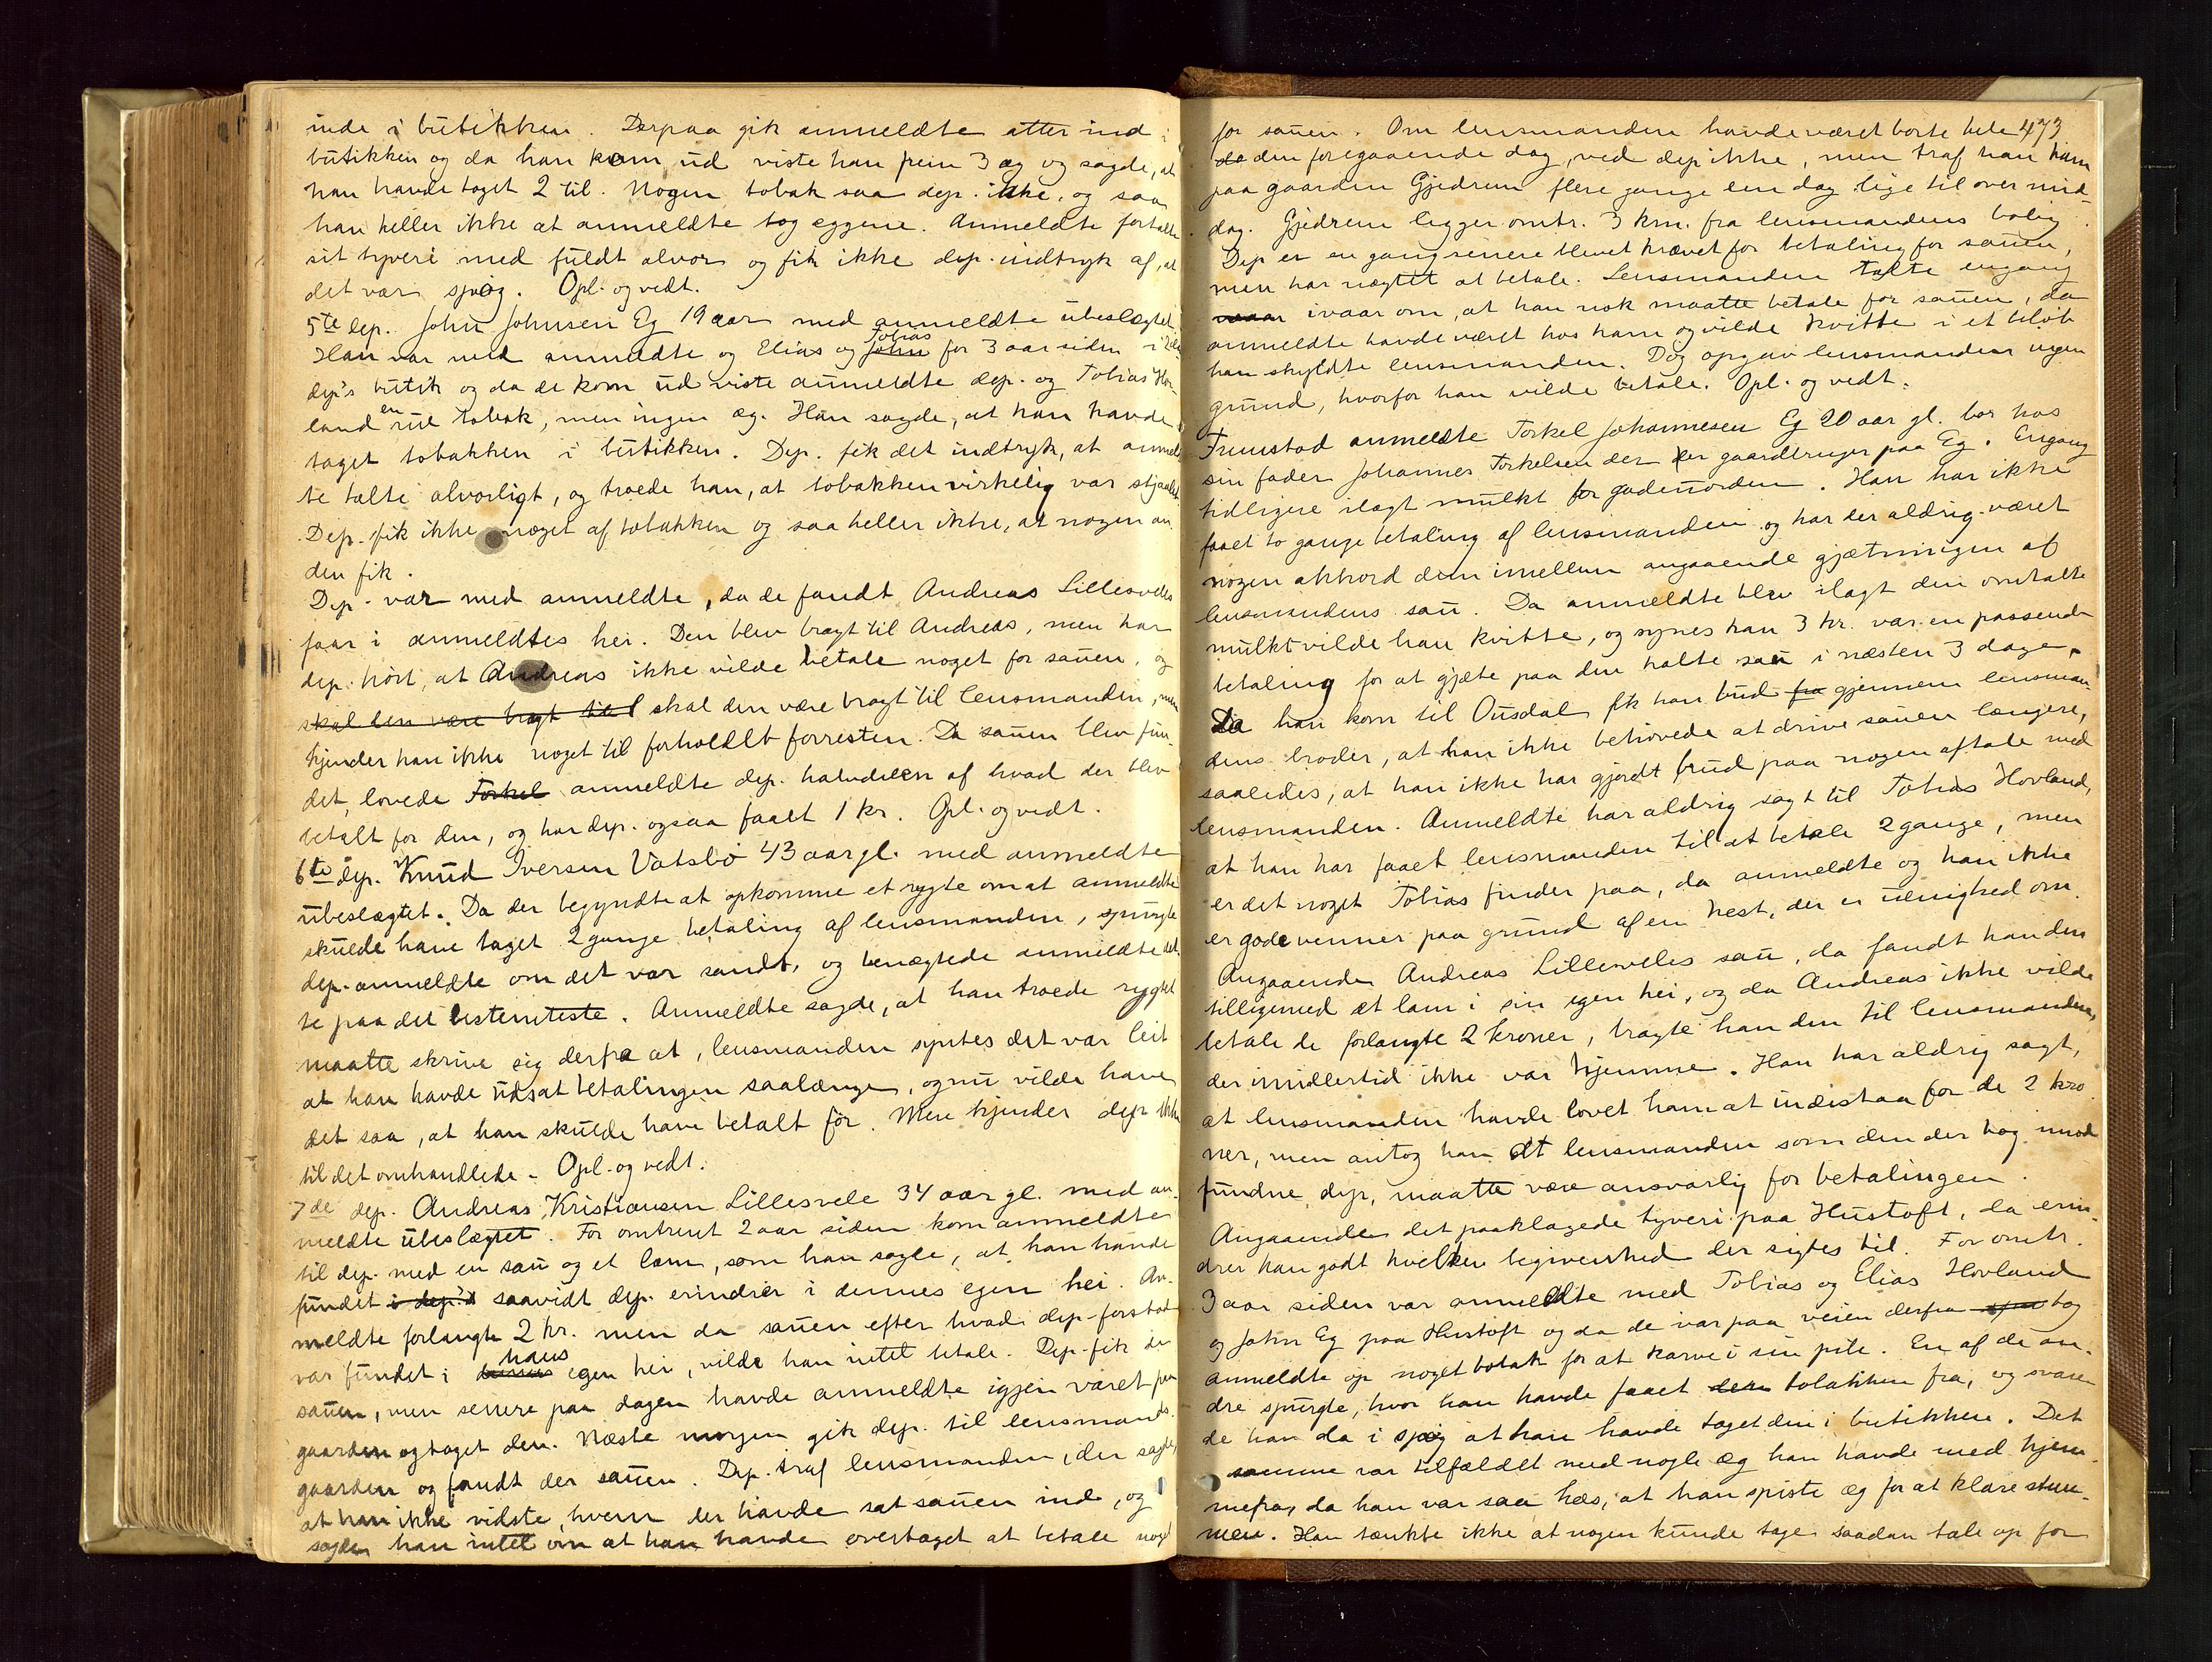 inde i butikken. Derpaa gik anmeldte atter ind i
butikken og da han kom ud viste han frem 3 æg og sagde, at
han havde taget 2 til. Nogen tobak saa dep. ikke, og saa
han heller ikke at anmeldte tog eggene. Anmeldte fortalte
sit tyveri med fuldt alvor og fik ikke dep. indtryk af, at
det var spøg. Opl. og vedt.
5te dep. John Johnsen Eg 19 aar med anmeldte ubeslægtet.
Han var med anmeldte og Elias og John Tobias for 3 aar siden i 2de
dep's butik og da de kom ud viste anmeldte dep. og Tobias Hov-
land en rul tobak, men ingen æg. Han sagde, at han havde
taget tobakken i butikken. Dep. fik det indtryk, at anmeld-
te talte alvorligt, og troede han, at tobakken virkelig var stjaalet
Dep. fik ikke noget af tobakken og saa heller ikke, at nogen an-
den fik.
Dep. var med anmeldte, da de fandt Andreas Lillesveles
faar i anmeldtes hei. Den blev bragt til Andreas, men har
dep. hørt, at Andreas ikke vilde betale noget for sauen, og
skal den være bragt til skal den være bragt til lensmanden, men
kjender han ikke noget til forholdet forresten. Da sauen blev fun-
det, lovede Torkel anmeldte dep. halvdelen af hvad der blev
betalt for den, og har dep. ogsaa faaet 1 kr. Opl. og vedt.
6te dep. Knud Iversen Vatsbø 43 aar gl. med anmeldte
ubeslægtet. Da der begyndte at opkomme et rygte om at anmeldte
skulde have taget 2 gange betaling af lensmanden, spurgte
dep. anmeldte om det var sandt, og benægtede anmeldte det-
te paa det bestemteste. Anmeldte sagde, at han troede rygtet
maatte skrive sig derfra at, lensmanden syntes det var leit
at han havde udsat betalingen saalænge, og nu vilde have
det saa, at han skulde have betalt før. Mere kjender dep. ikke
til det omhandlede. Opl. og vedt.
7de dep. Andreas Kristiansen Lillesvele 34 aar gl. med an-
meldte ubeslægtet. For omtrent 2 aar siden kom anmeldte
til dep. med en sau og et lam, som han sagde, at han havde
fundet i dep's saavidt dep. erindrer i dennes egen hei. An-
meldte forlangte 2 kr. men da sauen efter hvad dep. forstod
var fundet i dennes hans egen hei, vilde han intet betale. Dep. fik da
sauen, men senere paa dagen havde anmeldte igjen været paa
gaarden og taget den. Næste morgen gik dep. til lensmands-
gaarden og fandt der sauen. Dep. traf lensmanden, der sagde,
at han ikke vidste, hvem der havde sat sauen ind, og
sagde han intet om at han havde overtaget at betale noget
473
for sauen. Om lensmanden havde været borte hele
da den foregaaende dag, ved dep ikke, men traf han ham
paa gaarden Gjedrem flere gange den dag lige til over mid-
dag. Gjedrem ligger omtr. 3 km. fra lensmandens bolig.
Dep er en gang senere blevet krævet for betaling for sauen,
men har nægtet at betale. Lensmanden talte engang
ivaar om, at han nok maatte betale for sauen, da
anmeldte havde været hos ham og vilde kvitte i et beløb
han skyldte lensmanden. Dog opgav lensmanden ingen
grund, hvorfor han vilde betale. Opl. og vedt.
Fremstod anmeldte Torkel Johannesen Eg 20 aar gl. bor hos
sin fader Johannes Torkelsen der er gaardbruger paa Eg. Engang
tidligere ilagt mulkt for gadeuorden. Han har ikke
faaet to gange betaling af lensmanden og har der aldrig været
nogen akkord dem imellem angaaende gjætningen af
lensmandens sau. Da anmeldte blev ilagt den omtalte
mulkt vilde han kvitte, og synes han 3 kr. var en passende
betaling for at gjæte paa den halte sau i næsten 3 dage.
Da han kom til Ousdal fik han bud fra gjennem lensman-
dens broder, at han ikke behøvede at drive sauen længere,
saaledes, at han ikke har gjordt brud paa nogen aftale med
lensmanden. Anmeldte har aldrig sagt til Tobias Hovland,
at han har faaet lensmanden til at betale 2 gange, men
er det noget Tobias finder paa, da anmeldte og han ikke
er gode venner paa grund af en hest, der er uenighed om.
Angaaende Andreas Lillesveles sau, da fandt han den
tilligemed et lam i sin egen hei, og da Andreas ikke vilde
betale de forlangte 2 kroner, bragte han den til lensmanden,
der imidlertid ikke var hjemme. Han har aldrig sagt,
at lensmanden havde lovet ham at indestaa for de 2 kro-
ner, men antog han at lensmanden som den der tog imod
fundne dyr, maatte være ansvarlig for betalingen.
Angaaende det paaklagede tyveri paa Hustoft, da erin-
drer han godt hvilken begivenhed der sigtes til. For omtr.
3 aar siden var anmeldte med Tobias og Elias Hovland
og John Eg paa Hustoft og da de var paa veien derfra tog
anmeldte op noget tobak for at karve i sin pibe. En af de an-
dre spurgte, hvor han havde faaet den tobakken fra, og svare-
de han da i spøg at han havde taget den i butikken. Det
samme var tilfældet med nogle æg han havde med hjem-
mefra, da han var saa hæs, at han spiste æg for at klare stem-
men. Han tænkte ikke at nogen kunde tage saadan tale op for